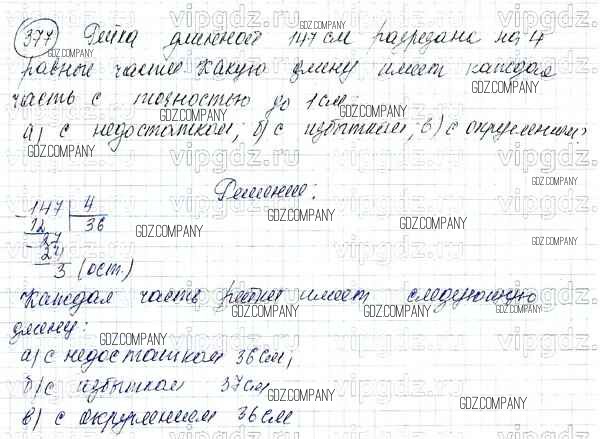 377 Рейка длиной 147 см разрезана на 4
равные части. Какую длину имеет каждая
часть с точностью до 1 см:
а) с недостатком; б) с избытком; в) с округлением?
Решение:
147 | 4
12 36
27
24
3 (ост.)
Каждая часть рейки имеет следующую
длину:
а) с недостатком 36 см;
б) с избытком 37 см
в) с округлением 36 см